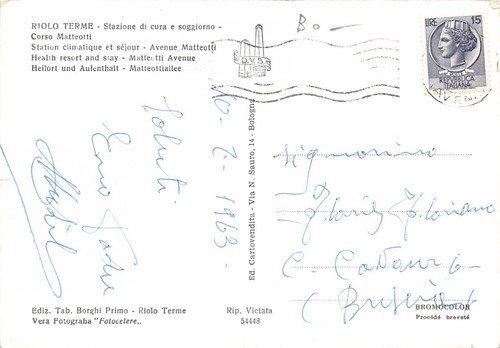 RIOLO TERME - Stazione di cura e soggiorno -
Corso Matteotti
Station climatique et séjour - Avenue Matteotti
Health resort and stay - Matteotti Avenue
Heilort und Aufenthalt - Matteottiallee
B.
LIRE 15
Saluti
10-2-1963-
Ed. Cartovendita - Via N. Sauro, 14 - Bologna
Signorino
Floriano
C.
(Brescia)
Ediz. Tab. Borghi Primo - Riolo Terme
Vera Fotografia "Fotocelere„
Rip. Vietata
54448
BROMOCOLOR
Procédé breveté